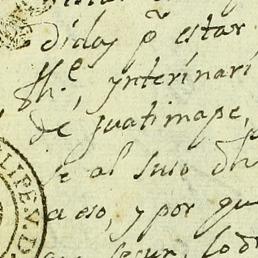 didas p.r estar
Th.e, ynterinari
de Juatimape,
se al suso dh
a eso, y por qu
LIPEV.D.